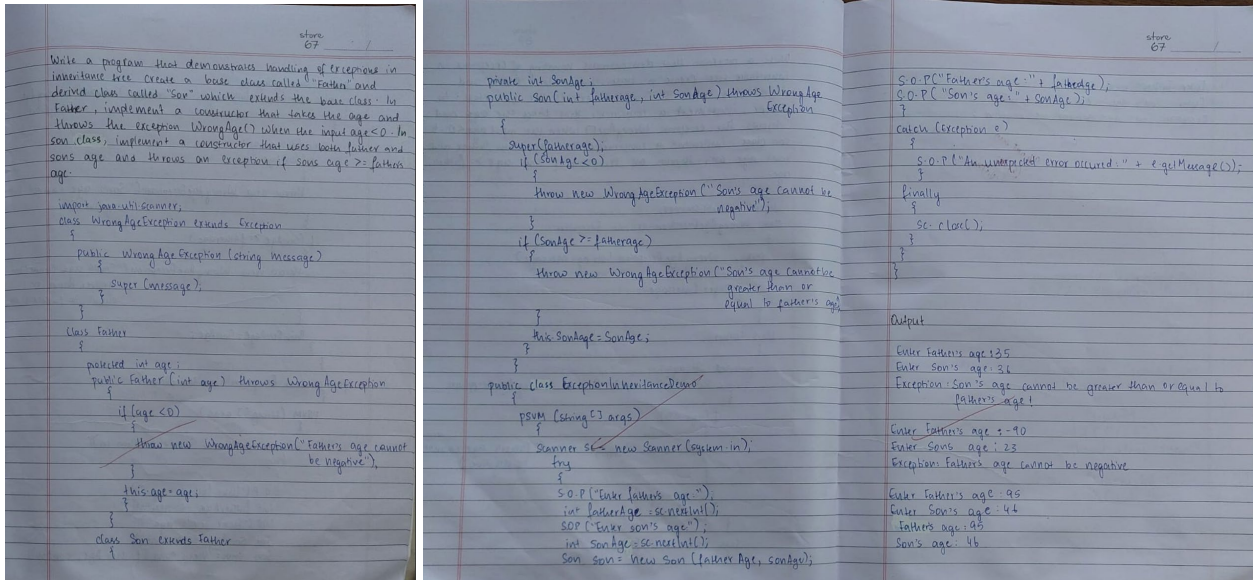 store
67
Write a program that demonstrates handling of exceptions in
inheritance tree create a base class called "Father" and
derived class called "Son" which extends the base class. In
Father, implement a constructor that takes the age and
throws the exception WrongAge() when the input age<0. In
son class, implement a constructor that uses both father and
sons age and throws an exception if sons age >= fathers
age.
import java.util.scanner;
class WrongAgeException extends Exception
{
public WrongAgeException (string message)
{
super (message);
}
}
class Father
{
protected int age;
public Father (int age) throws WrongAgeException
{
if (age <0)
{
throw new WrongAgeException("Father's age cannot
be negative");
}
this.age = age;
}
}
class Son extends Father
{
private int SonAge;
public Son(int fatherage, int SonAge) throws WrongAge
Exception
{
super(fatherage);
if (SonAge <0)
{
throw new WrongAgeException("Son's age cannot be
negative");
}
if (SonAge >= fatherage)
{
throw new WrongAgeException("Son's age cannot be
greater than or
equal to father's age
}
this.SonAge = SonAge;
}
}
public class ExceptionInheritanceDemo
{
PSVM (string[] args)
{
Scanner sc = new Scanner (system.in);
try
{
S.O.P ("Enter father's age:");
int fatherAge = sc.nextInt();
S.O.P ("Enter son's age");
int SonAge = sc.nextInt();
Son son = new Son (fatherAge, sonAge);
store
67
S.O.P("Father's age:" + fatherage);
S.O.P("Son's age:" + SonAge);
}
catch (Exception e)
{
S.O.P("An unexpected error occured:" + e.getMessage());
}
finally
{
sc.close();
}
}
}
Output
Enter Father's age : 35
Enter Son's age : 36
Exception: Son's age cannot be greater than or equal to
father's age!
Enter Father's age : -90
Enter Sons age : 23
Exception: Father's age cannot be negative
Enter Father's age : 95
Enter Son's age : 46
Father's age : 95
Son's age : 46